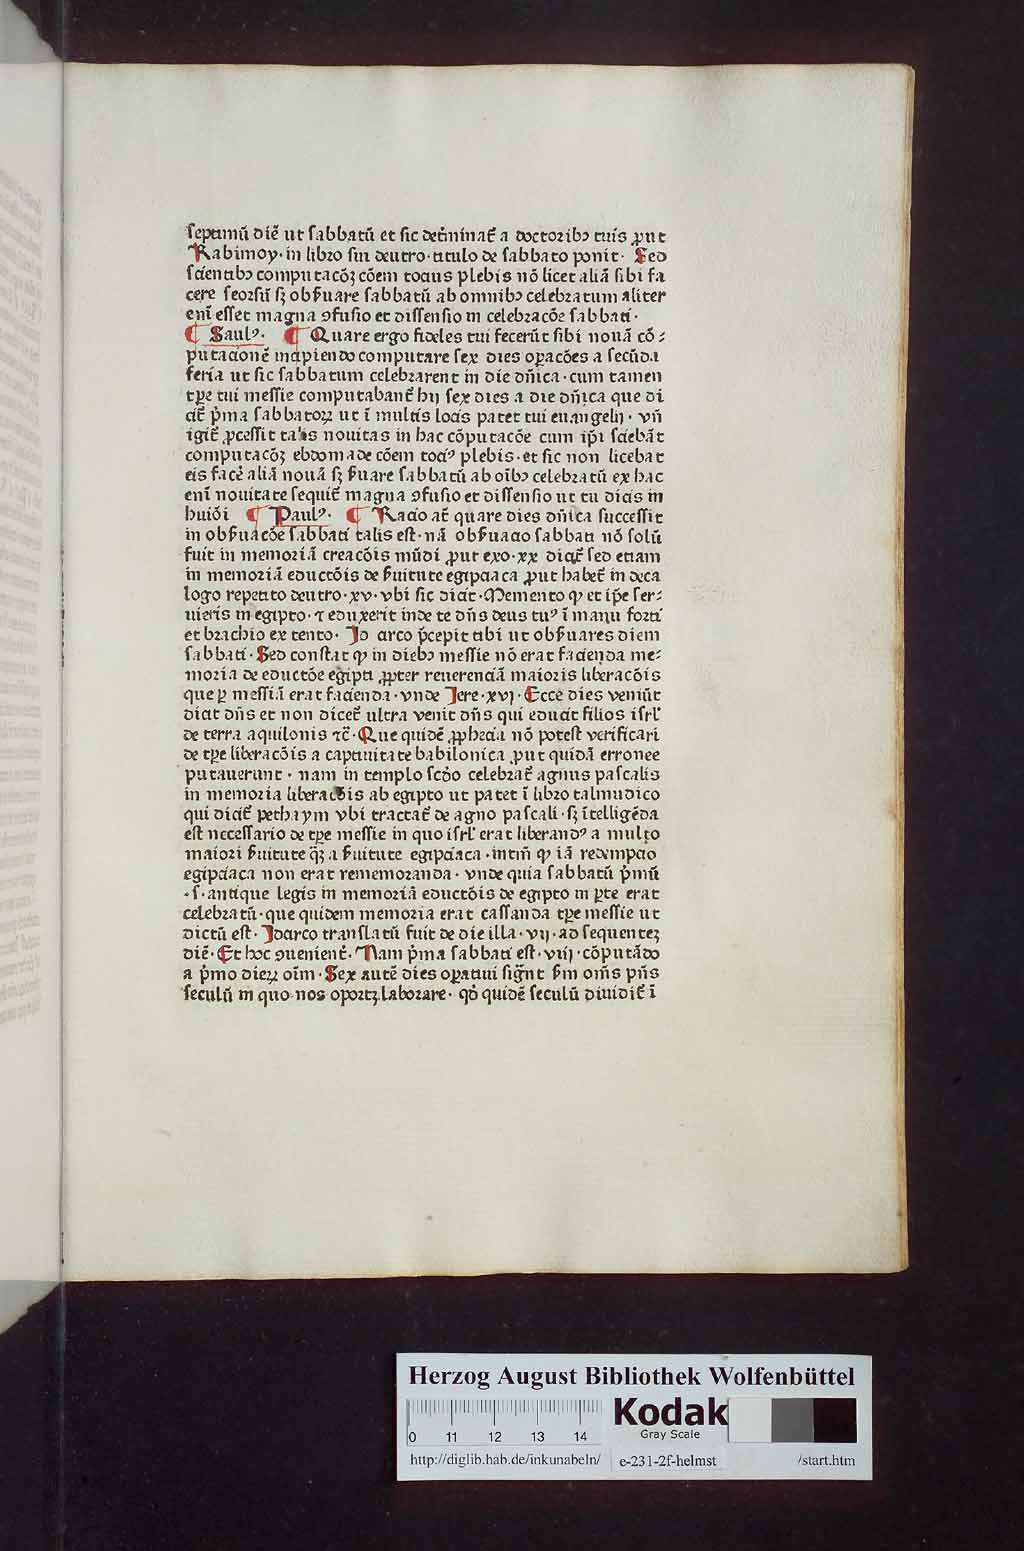 septimū diē ut sabbatū et sic det̄minat᷑ a doctoribꝰ tuis ꝓut
Rabimoy · in libro sui deutro · titulo de sabbato ponit · Sed
scientibꝰ computacōꝫ cōem tocius plebis nō licet aliā sibi fa
cere seorsū sꝫ obẜuare sabbatū ab omnibꝰ celebratum aliter
eni᷑ esset magna ꝯfusio et dissensio in celebracōe sabbati ·
¶ Saulꝰ · ¶ Quare ergo fideles tui fecerūt sibi nouā cō⸗
putacionē incipiendo computare sex dies oꝑacōes a secūda
feria ut sic sabbatum celebrarent in die dn̄ica · cum tamen
tꝑe tui messie computabant᷑ hij sex dies a die dn̄ica que di
cit᷑ p̄ma sabbatoꝝ ut ī multis locis patet tui euangelij · vn̄
igit᷑ ꝓcessit talis nouitas in hac cōputacōe cum ip̄i sciebāt
computacōꝫ ebdomade cōem tociꝰ plebis · et sic non licebat
eis face᷑ aliā nouā sꝫ ẜuare sabbatū ab oībꝰ celebratū ex hac
eni᷑ nouitate sequit᷑ magna ꝯfusio et dissensio ut tu dicis in
huiōi ¶ Paulꝰ · ¶ Racio at᷑ quare dies dn̄ica successit
in obẜuacōe sabbati talis est · nā obẜuacio sabbati nō solū
fuit in memoriā creacōis mūdi ꝓut exo · xx dicit᷑ sed etiam
in memoriā eductōis de ẜuitute egipciaca ꝓut habet᷑ in deca
logo repetito deutro · xv · vbi sic dicit · Memento ꝙ et ip̄e ser⸗
uieris in egipto · ⁊ eduxerit inde te dn̄s deus tuꝰ ī manu forti
et brachio extento · Jo arco p̄cepit tibi ut obẜuares diem
sabbati · Sed constat ꝙ in diebꝰ messie nō erat facienda me⸗
moria de eductōe egipti ꝓpter reuerenciā maioris liberacōis
que ꝑ messiā erat facienda · vnde Jere · xvi · Ecce dies veniūt
dicit dn̄s et non dicet᷑ ultra venit dn̄s qui educit filios isrl᷑
de terra aquilonis ⁊c̄ · Que quidē ꝓphecia nō potest verificari
de tꝑe liberacōis a captiuitate babilonica ꝓut quidā erronee
putauerunt · nam in templo scd̄o celebrat᷑ agnus pascalis
in memoria liberacōis ab egipto ut patet ī libro talmudico
qui dicit᷑ pethaym vbi tractat᷑ de agno pascali · sꝫ ītelligēda
est necessario de tꝑe messie in quo isrl᷑ erat liberandꝰ a multo
maiori ẜuitute q̄ꝫ a ẜuitute egipciaca · intm̄ ꝙ iā redempcio
egipciaca non erat rememoranda · vnde quia sabbatū p̄mū
· s · antique legis in memoriā eductōis de egipto in ꝑte erat
celebratū · que quidem memoria erat cassanda tꝑe messie ut
dictū est · Jdarco translatū fuit de die illa · vij · ad sequentez
diē · Et hoc ꝯuenient᷑ · Nam p̄ma sabbati est · viij · cōputādo
a p̄mo dieꝝ oīm · Sex autē dies oꝑatiui sign̄t ẜm om̄s pn̄s
seculū in quo nos oportꝫ laborare · qd̄ quidē seculū diuidit᷑ ī
Herzog August Bibliothek Wolfenbüttel
0 11 12 13 14
Kodak
Gray Scale
http://diglib.hab.de/inkunabeln/ e-231-2f-helmst /start.htm